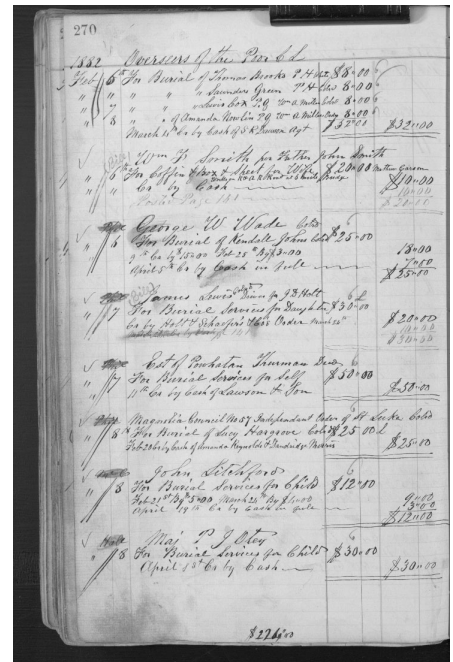 270
1882 Overseers of the Poor Cd
Feb 6th For Burial of Thomas Brooks P.H. $8"00
" " " " " Saunders Green P.H. Cold 8"00
" 7 " " " Lewis Cox P.G. Wm A. Miller Cold 8"00
" 8 " " of Amanda Newlin P.G. Wm A. Miller 8"00
March 21st Cr by Cash of S.R. Dawson Agt $32"00 $32"00
Wm F. Smith for Father John Smith
" 6th For Coffin & box & Sheet for Wife $20"00
" Cr by Cash $10"00
10"00
$20"00
George W. Wade Cold
" 6 For Burial of Kendall Johns Cold $25"00
9th Cr by 15"00 Feb 25th By $3"00 18"00
April 5th Cr by Cash in full 7"00
$25"00
James Lewis Cold Driver for J.D. Holt
" 7 For Burial Services for Daughter $30"00
Cr by Holt & Schaefers & Cos Order $20"00
$30"00
Est of Powhatan Thurman Decd
" 7 For Burial Services for Self $50"00
11th Cr by Cash of Lawson & Son $50"00
Magnolia Council No 57 Independent Order of St Luke Cold
" 8th For Burial of Lucy Hargrove Cold $25"00
Feb 20 Cr by Cash of Amanda Reynolds & Dandridge Merris $25"00
John Litchford
" 8 For Burial Services for Child $12"00
Feb 21st By 5"00 March 25th By $4"00 9"00
April 18th Cr by Cash in full 3"00
$12"00
Maj P J Otey
" 8 For Burial Services for Child $30"00
April Cr by Cash $30"00